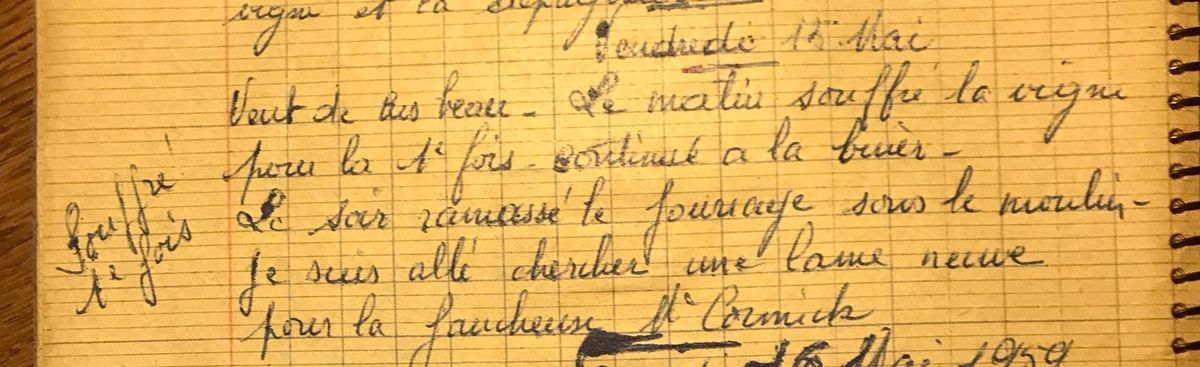 vigne et la
Vendredi 15 Mai
Vent de bas beau - Le matin souffré la vigne
pour la 1e fois - continué a la
Souffré
1e fois
Le soir ramassé le fourrage sous le moulin -
Je suis allé chercher une lame neuve
pour la faucheuse Mc Cormick
16 Mai 1959